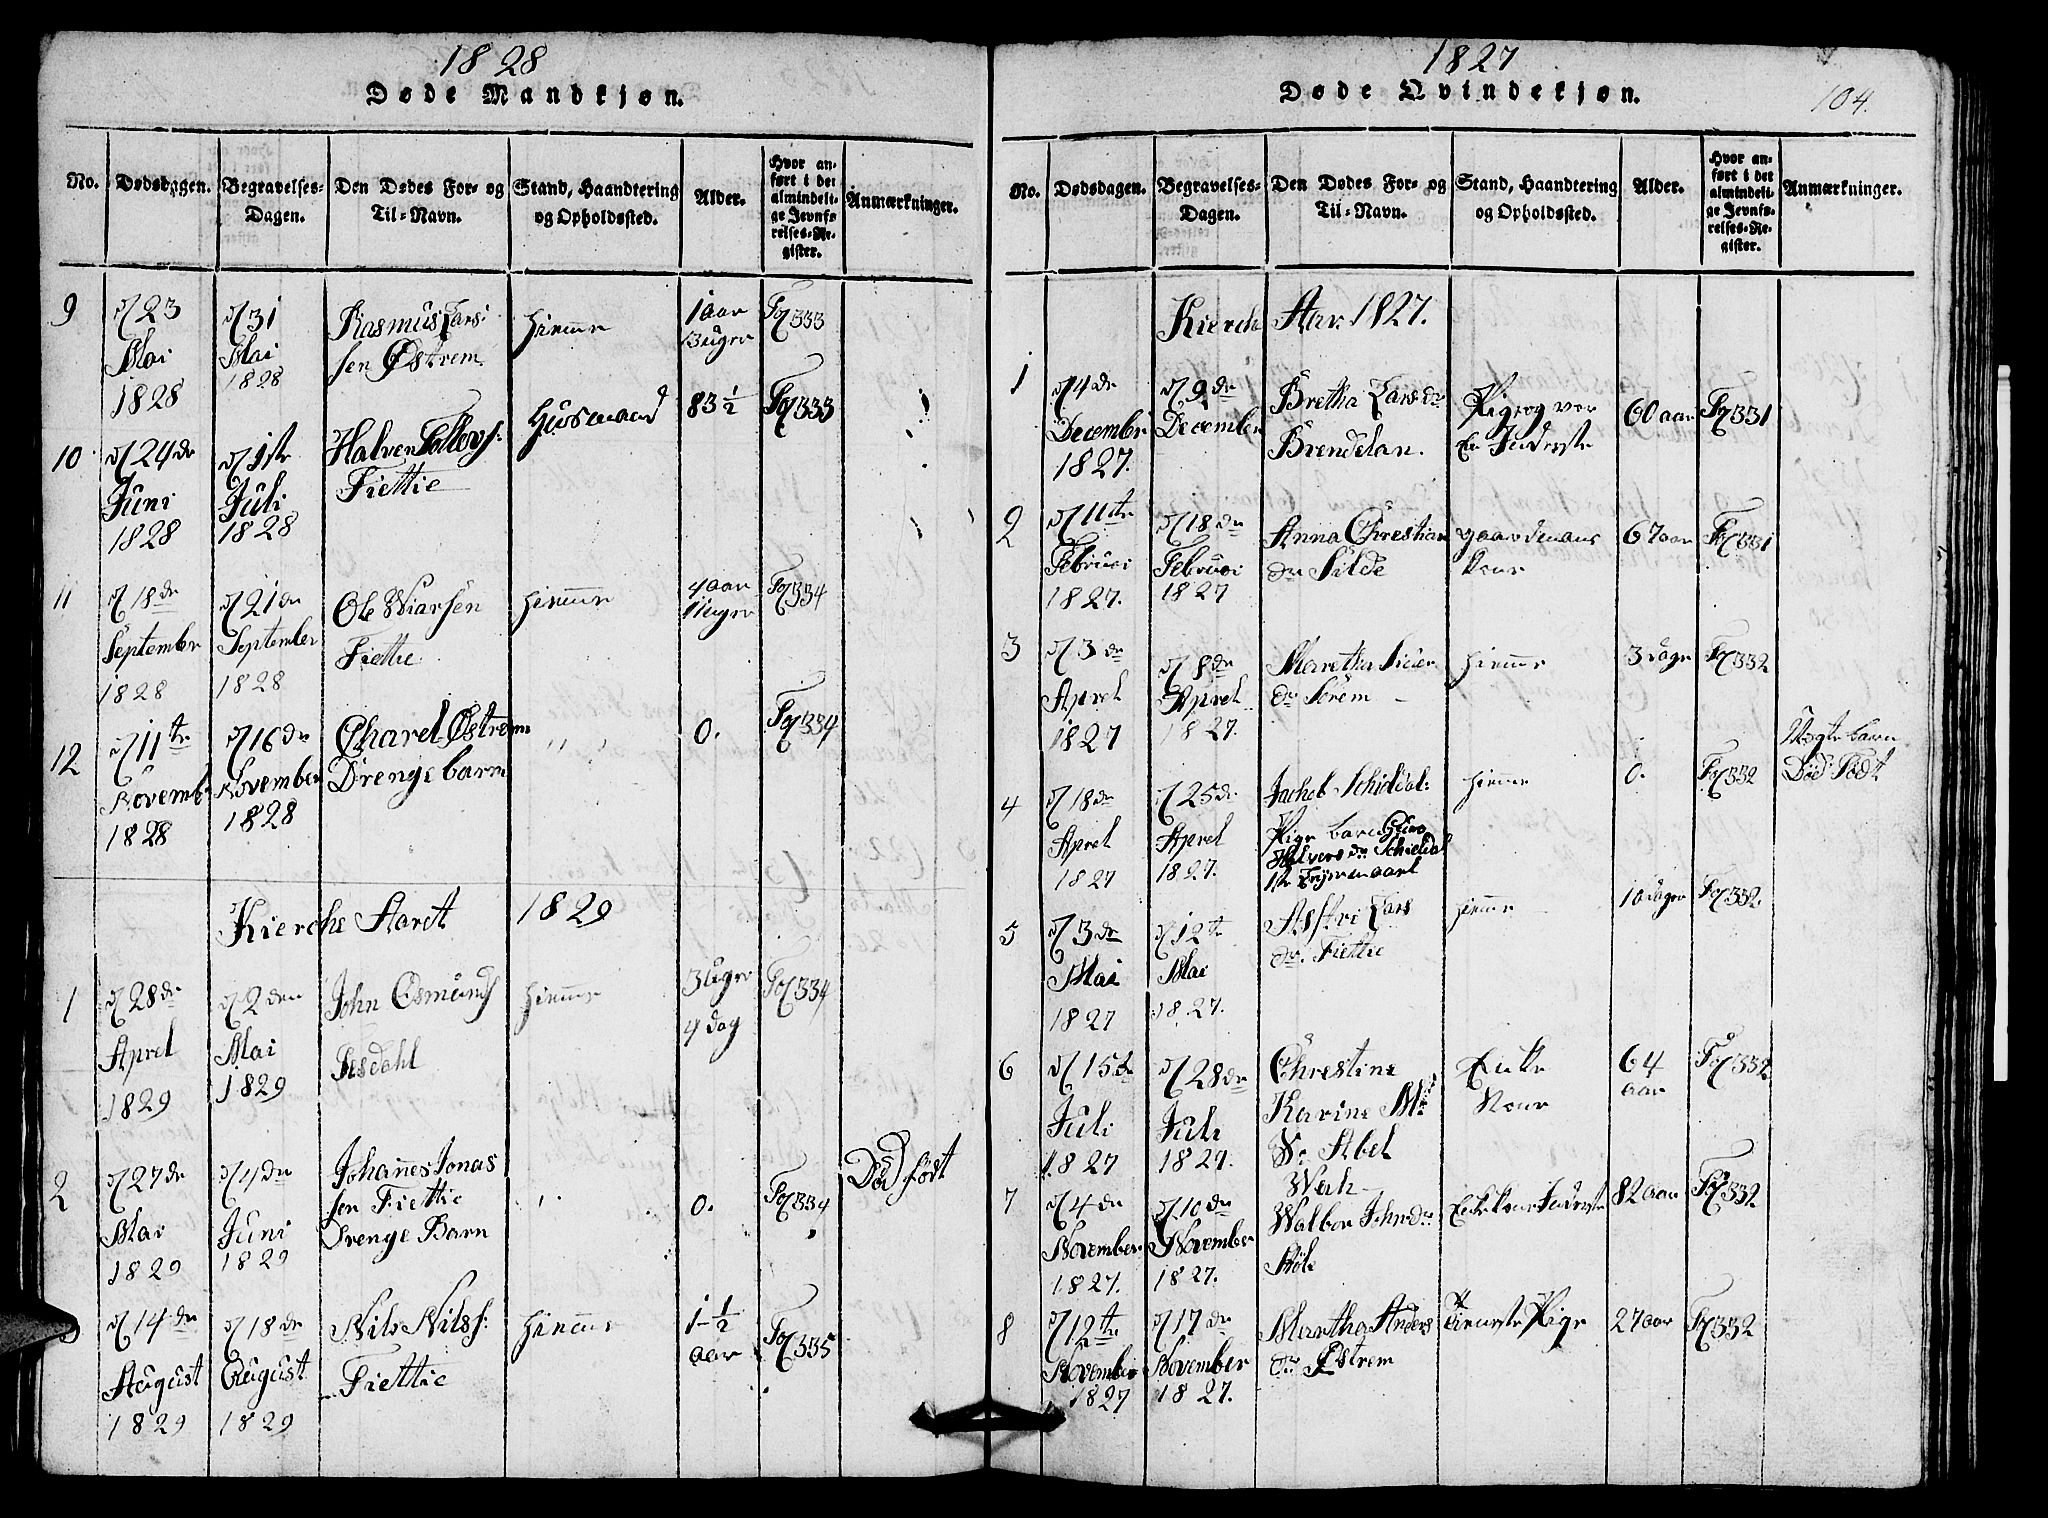 1828
Døde Mandkjøn.
No.
Dødsdagen.
Begravelses-
Dagen.
Den Dødes For- og
Til-Navn.
Stand, Haandtering
og Opholdssted.
Alder.
Hvor an-
ført i det
almindeli-
ge Jevnfø-
relses-Re-
gister.
Anmærkninger.
9
23
Mai
1828
31
Mai
1828
Rasmus Lars:
sen Østrem
hiemme
1 aar
13 uger
333
10
24de
Juni
1828
1ste
Juli
1828
Halven Tollevs:
Fiettie
Husmand
83 1/2
333
11
18de
September
1828
21de
September
1828
Ole Wiarsen
Fiettie
hiemme
4 aar
11 uger
334
12
11te
Novembr
1828
16de
November
1828
Charel Østrem
Drengebarn
0.
334
Kierche Aaret 1829
1
28de
Aprel
1829
2den
Mai
1829
John Osmunds
hiemme
3 uger
4 dag
334
2
27de
Mai
1829
4de
Juni
1829
Johannes Jonas
sen Fiettie
Drenge Barn
0.
334
Død født
3
14de
August
1829
18de
August
1829
Nils Nilss:
Fiettie
hiemme
1-1/2
aar
335
1827
Døde Qvindekjøn.
104.
No.
Dødsdagen.
Begravelses-
Dagen.
Den Dødes For- og
Til-Navn.
Stand, Haandtering
og Opholdssted.
Alder.
Hvor an-
ført i det
almindeli-
ge Jevnfø-
relses-Re-
gister.
Anmærkninger.
Kierche Aar. 1827.
1
4de
December
1827.
9de
December
Bretha Larsdr
Brendelan.
Pige og var
En Inderste
60 aar
331
2
11te
Februai
1827.
18de
Februai
1827
Anna Chrestian
dr Silde
gaardmans
kone
67 aar
331
3
3de
Aprel
1827
8de
Aprel
1827.
Maretha
dr Sørem
hiemme
3 dage
332
4
18de
Aprel
1827
25de
Aprel
1827.
Jachob Schieldal:
Pige barn
Halvers dr Schieldal
hiemme
0.
332
Ægte barn
Død Født
5
3de
Mai
1827
12te
Mai
1827.
Astri Lars
dr. Fiettie
hiemme
10 dager
332.
6
15de
Juli
1827
28de
Juli
1827.
Chrestine
Karine M:
Sr Abel
Enke
Kone
64
aar
332
7
4de
November
1827.
10de
November
1827.
Walbor Johndr
Støle
82 aar
332
8
12te
November
1827
17de
November
1827.
Martha Anders
dr Østrem
Tieneste Pige
27 aar
332